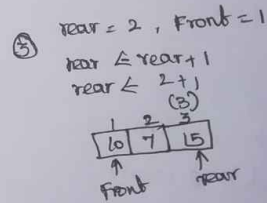 ③ rear = 2, Front = 1
rear ⇐ rear + 1
rear ⇐ 2+1
(3)
1 2 3
10 7 15
Front rear